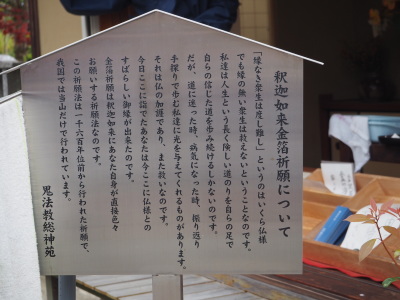 釈迦如来金箔祈願について
「縁なき衆生は度し難し」というのはいくら仏様
でも縁の無い衆生は救えないということなのです。
私達は人生という長く険しい道のりを自らの足で
自らの信じた道を歩み続けるしかないのです。
だが、道に迷った時、病気になった時、振り返り
手探りで歩む私達に光を与えてくれるものがあります。
それは仏の加護であり、また救いなのです。
今日ここに詣でたあなたは今ここに仏様との
すばらしい御縁が出来たのです。
金箔祈願は釈迦如来にあなた自身が直接色々
お願いする祈願法なのです。
この祈願法は一千六百年位前から行われた祈願で、
我国では当山だけで行われています。
鬼法教総神苑